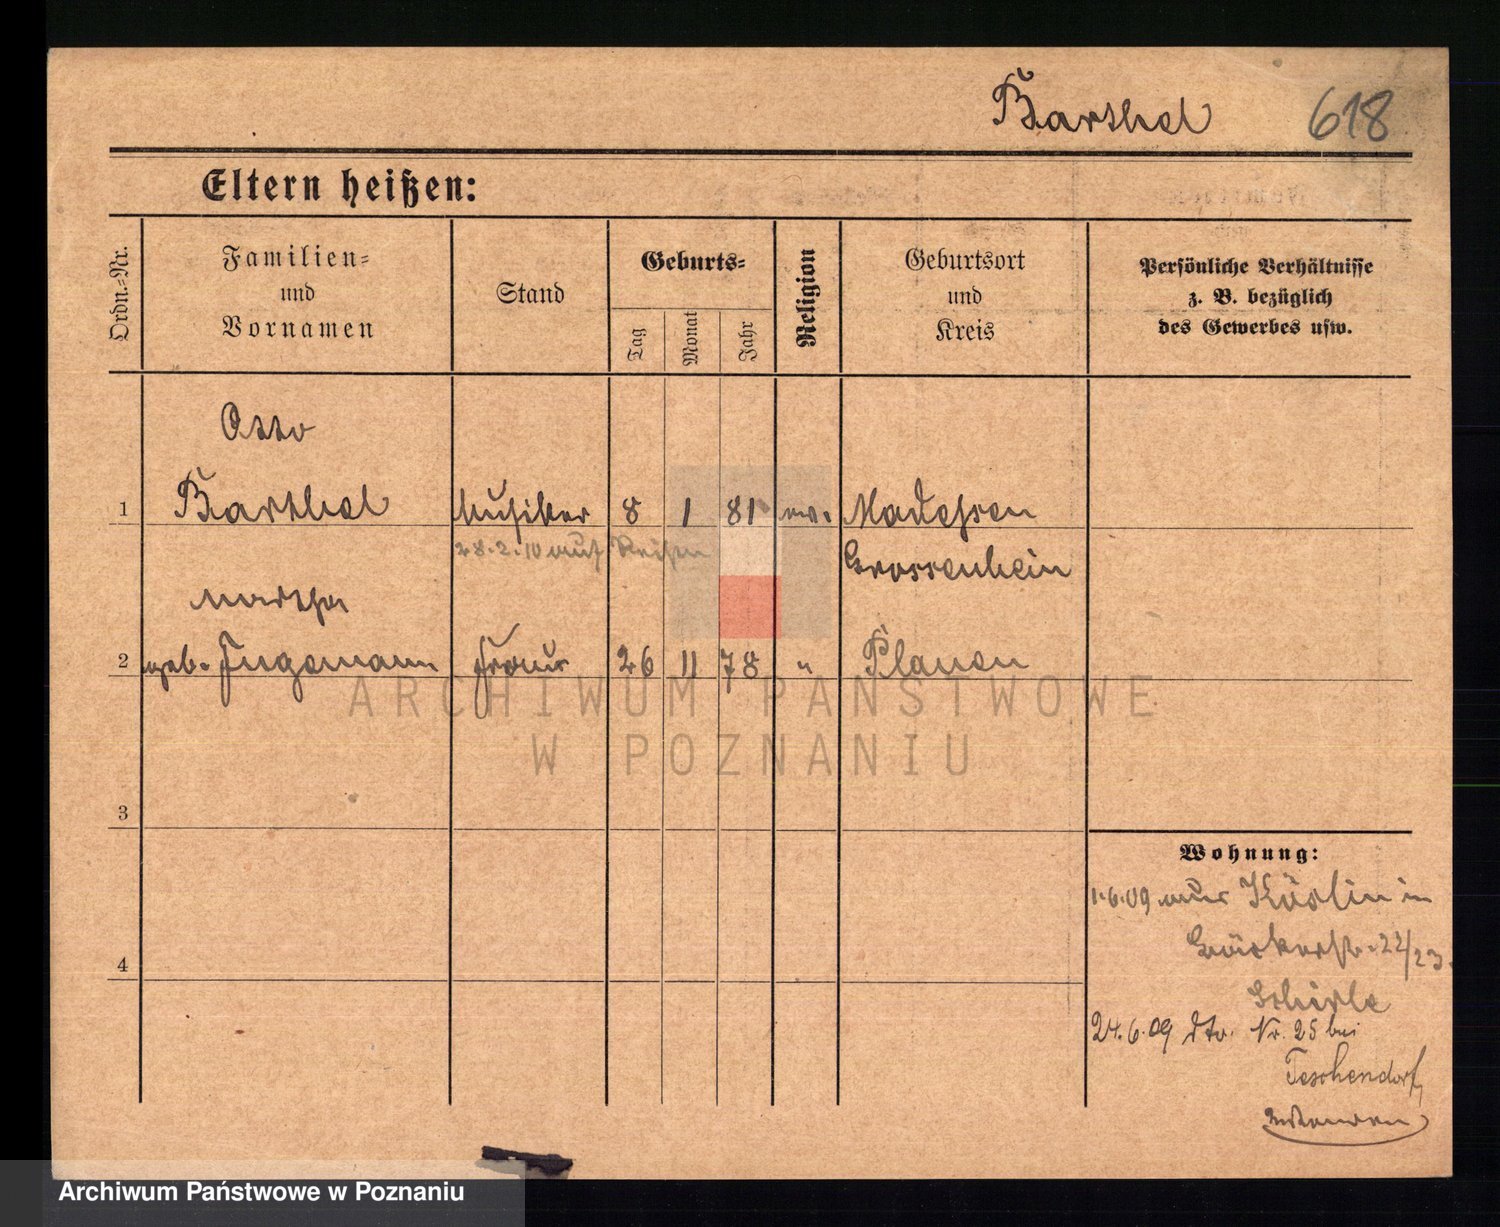 Barthel 618
Eltern heißen:
Ordn.-Nr.
Familien-
und
Vornamen
Stand
Geburts-
Tag
Monat
Jahr
Religion
Geburtsort
und
Kreis
Persönliche Verhältnisse
z. B. bezüglich
des Gewerbes usw.
Otto
1 Barthel Musiker 8 1 81 ev. 
28.2.10 auf Reisen
Grossenhein
Martha
2 geb. Jugemann Frau 26 11 78 " Plauen
ARCHIWUM PAŃSTWOWE
W POZNANIU
3
Wohnung:
1.6.09 aus Köslin in
22/23
4
24.6.09 dto. Nr. 25 bei
Teschendorf
Archiwum Państwowe w Poznaniu